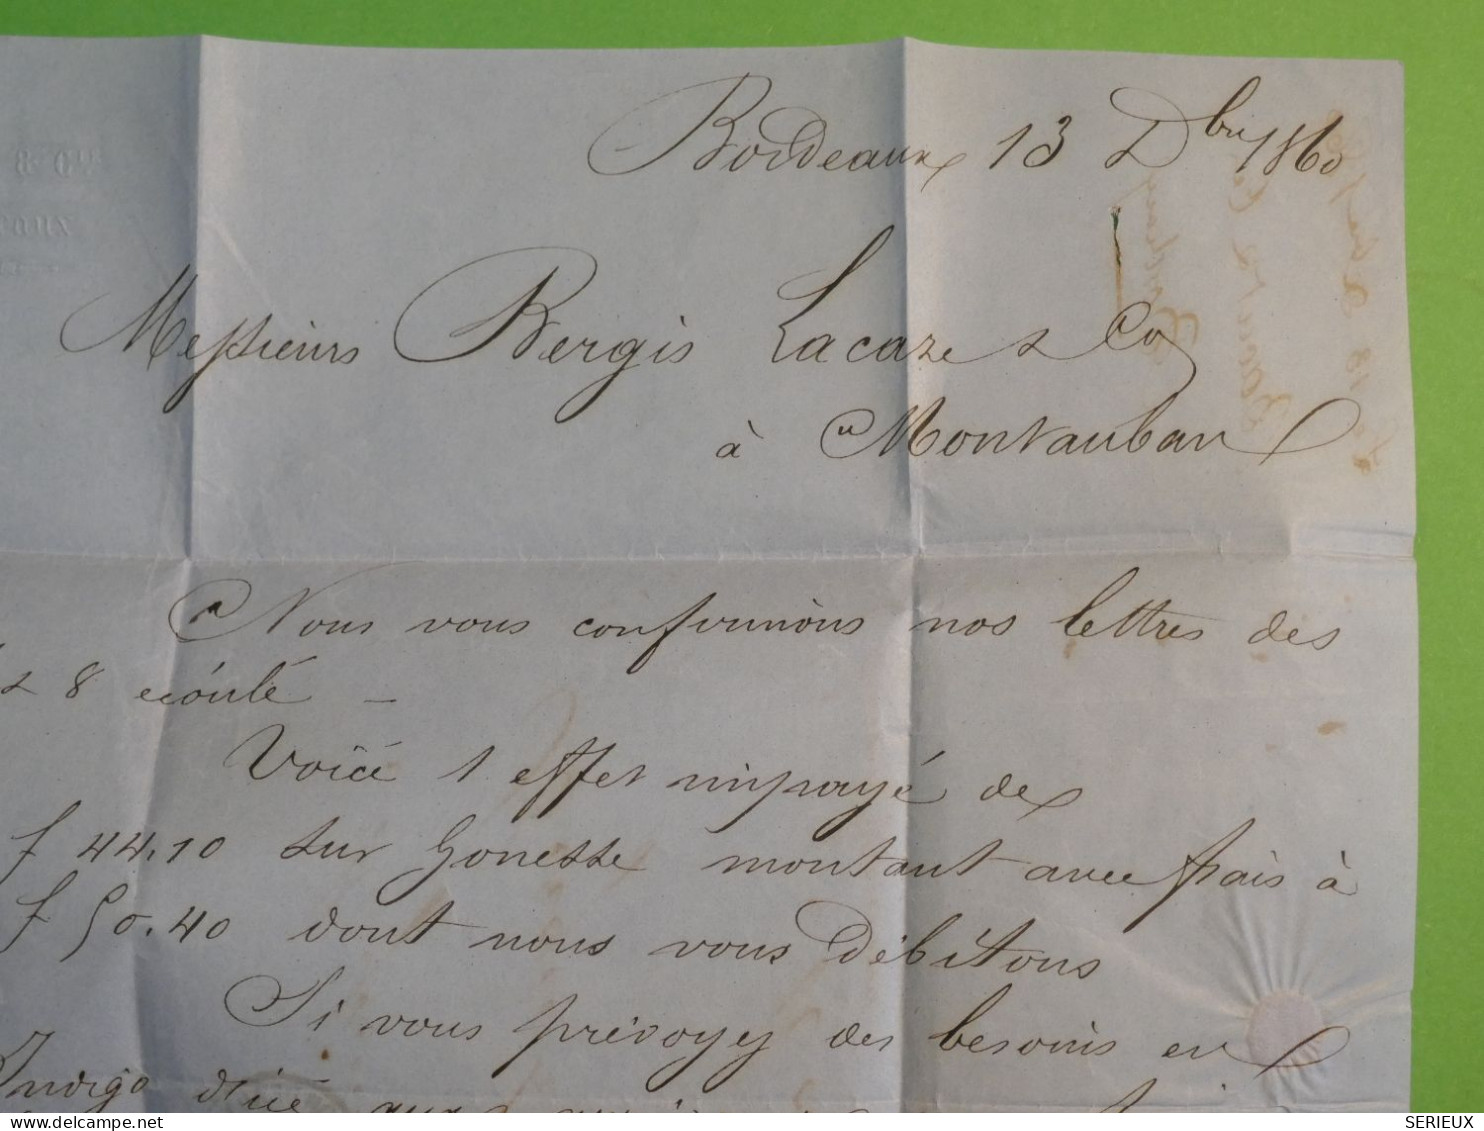 Bordeaux 13 Xbre 1860
Messieurs Bergis Lacaze & Co
à Montauban
Nous vous confirmions nos lettres des
& 8 écoulé -
Voici 1 effet impayé de
f 44.10 sur Gonesse montant avec frais à
f 50.40 dont nous vous débitons
Si vous prévoyez des besoins en
Indigo d'ici
SERIEUX